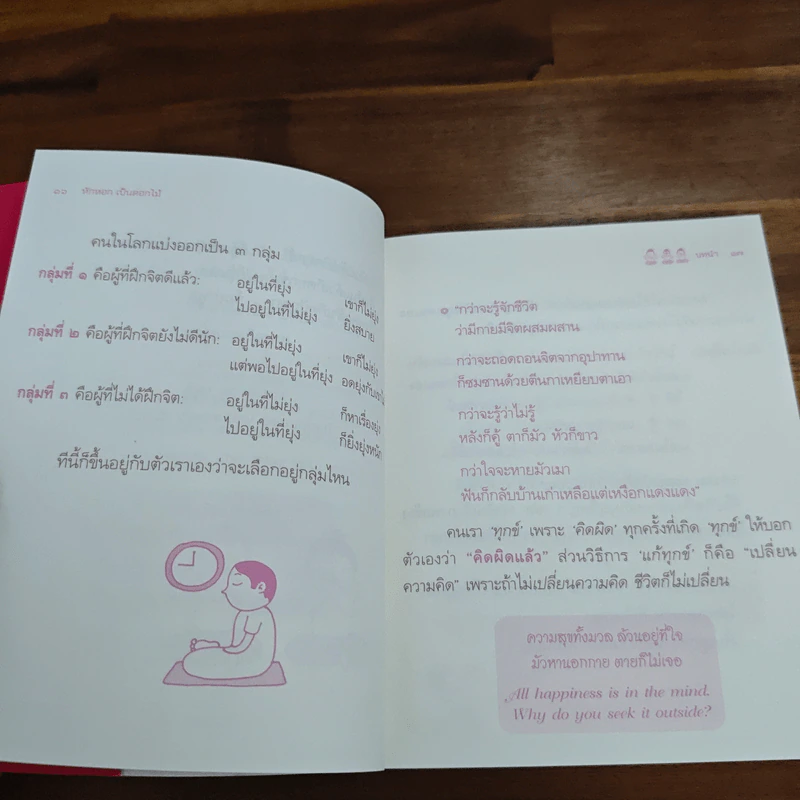 ๑๖ หักหอก เป็นดอกไม้
คนในโลกแบ่งออกเป็น ๓ กลุ่ม
กลุ่มที่ ๑ คือผู้ที่ฝึกจิตดีแล้ว: อยู่ในที่ยุ่ง เขาก็ไม่ยุ่ง
ไปอยู่ในที่ไม่ยุ่ง ยิ่งสบาย
กลุ่มที่ ๒ คือผู้ที่ฝึกจิตยังไม่ดีนัก: อยู่ในที่ไม่ยุ่ง เขาก็ไม่ยุ่ง
แต่พอไปอยู่ในที่ยุ่ง อดยุ่งกับเขา
กลุ่มที่ ๓ คือผู้ที่ไม่ได้ฝึกจิต: อยู่ในที่ไม่ยุ่ง ก็หาเรื่องยุ่ง
ไปอยู่ในที่ยุ่ง ก็ยิ่งยุ่งหนัก
ทีนี้ก็ขึ้นอยู่กับตัวเราเองว่าจะเลือกอยู่กลุ่มไหน
บทนำ ๑๗
๐ "กว่าจะรู้จักชีวิต
ว่ามีกายมีจิตผสมผสาน
กว่าจะถอดถอนจิตจากอุปาทาน
ก็ซมซานด้วยตีนกาเหยียบตาเอา
กว่าจะรู้ว่าไม่รู้
หลังก็คู้ ตาก็มัว หัวก็ขาว
กว่าใจจะหายมัวเมา
ฟันก็กลับบ้านเก่าเหลือแต่เหงือกแดงแดง"
คนเรา 'ทุกข์' เพราะ 'คิดผิด' ทุกครั้งที่เกิด 'ทุกข์' ให้บอก
ตัวเองว่า "คิดผิดแล้ว" ส่วนวิธีการ 'แก้ทุกข์' ก็คือ "เปลี่ยน
ความคิด" เพราะถ้าไม่เปลี่ยนความคิด ชีวิตก็ไม่เปลี่ยน
ความสุขทั้งมวล ล้วนอยู่ที่ใจ
มัวหานอกกาย ตายก็ไม่เจอ
All happiness is in the mind.
Why do you seek it outside?